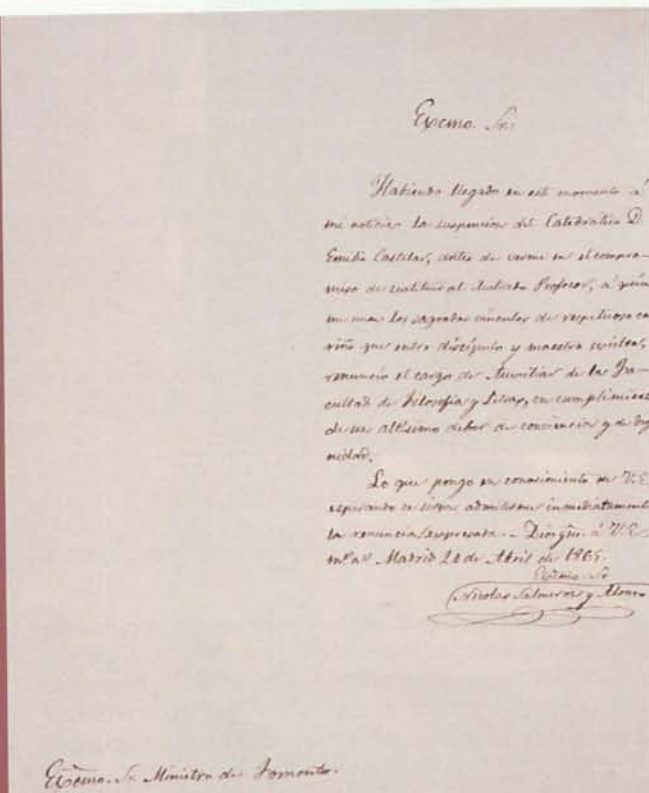 Excmo. Sr.
Habiendo llegado en este momento á
mi noticia la suspension del Catedrático D.
Emilio Castelar, antes de verme en el compro-
miso de sustituir al ilustrado Profesor, á quien
me unen los sagrados vínculos de respetuoso ca
riño que entre discípulo y maestro existen,
renuncio el cargo de Auxiliar de la Fa-
cultad de Filosofía y Letras, en cumplimiento
de un altísimo deber de conciencia y de dig
nidad.
Lo que pongo en conocimiento de V.E.
esperando se sirva admitirme inmediatamente
la renuncia expresada. - Dios gûe. á V.E.
m.s a.s Madrid 20 de Abril de 1865.
Excmo. Sr.
Nicolas Salmeron y Alonso
Excmo. Sr. Ministro de Fomento.